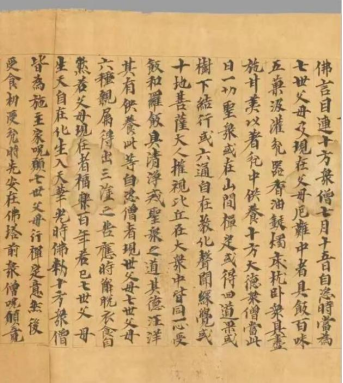 佛言目連十方衆僧七月十五日自恣時當為
七世父母及現在父母厄難中者具飯百味
五菓汲灌瓫器香油錠燭床枕卧衆具盡
施甘美以著瓫中供養十方大德衆僧當此
日一切聖衆或在山間禪定或得四道果或
樹下經行或六通自在教化聲聞緣覺或
十地菩薩大人權現比丘在大衆中皆同一心受
飯和羅飯具清淨戒聖衆之道其德汪洋
其有供養此等自恣僧者現世父母七世父母
六種親屬得出三塗之苦應時解脫衣食自
然若父母現在者福樂百年若已七世父母
生天自在化生入天華光時佛勅十方衆僧
皆為施主家呪願七世父母行禪定意然後
受食初受瓫時先安在佛塔前衆僧呪願竟